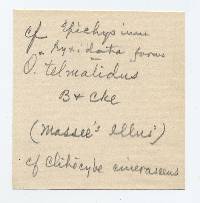 cf Epichysium
O. telmatidus
B & Cke
(Massee's Illus')
cf Clitocybe cinerascens